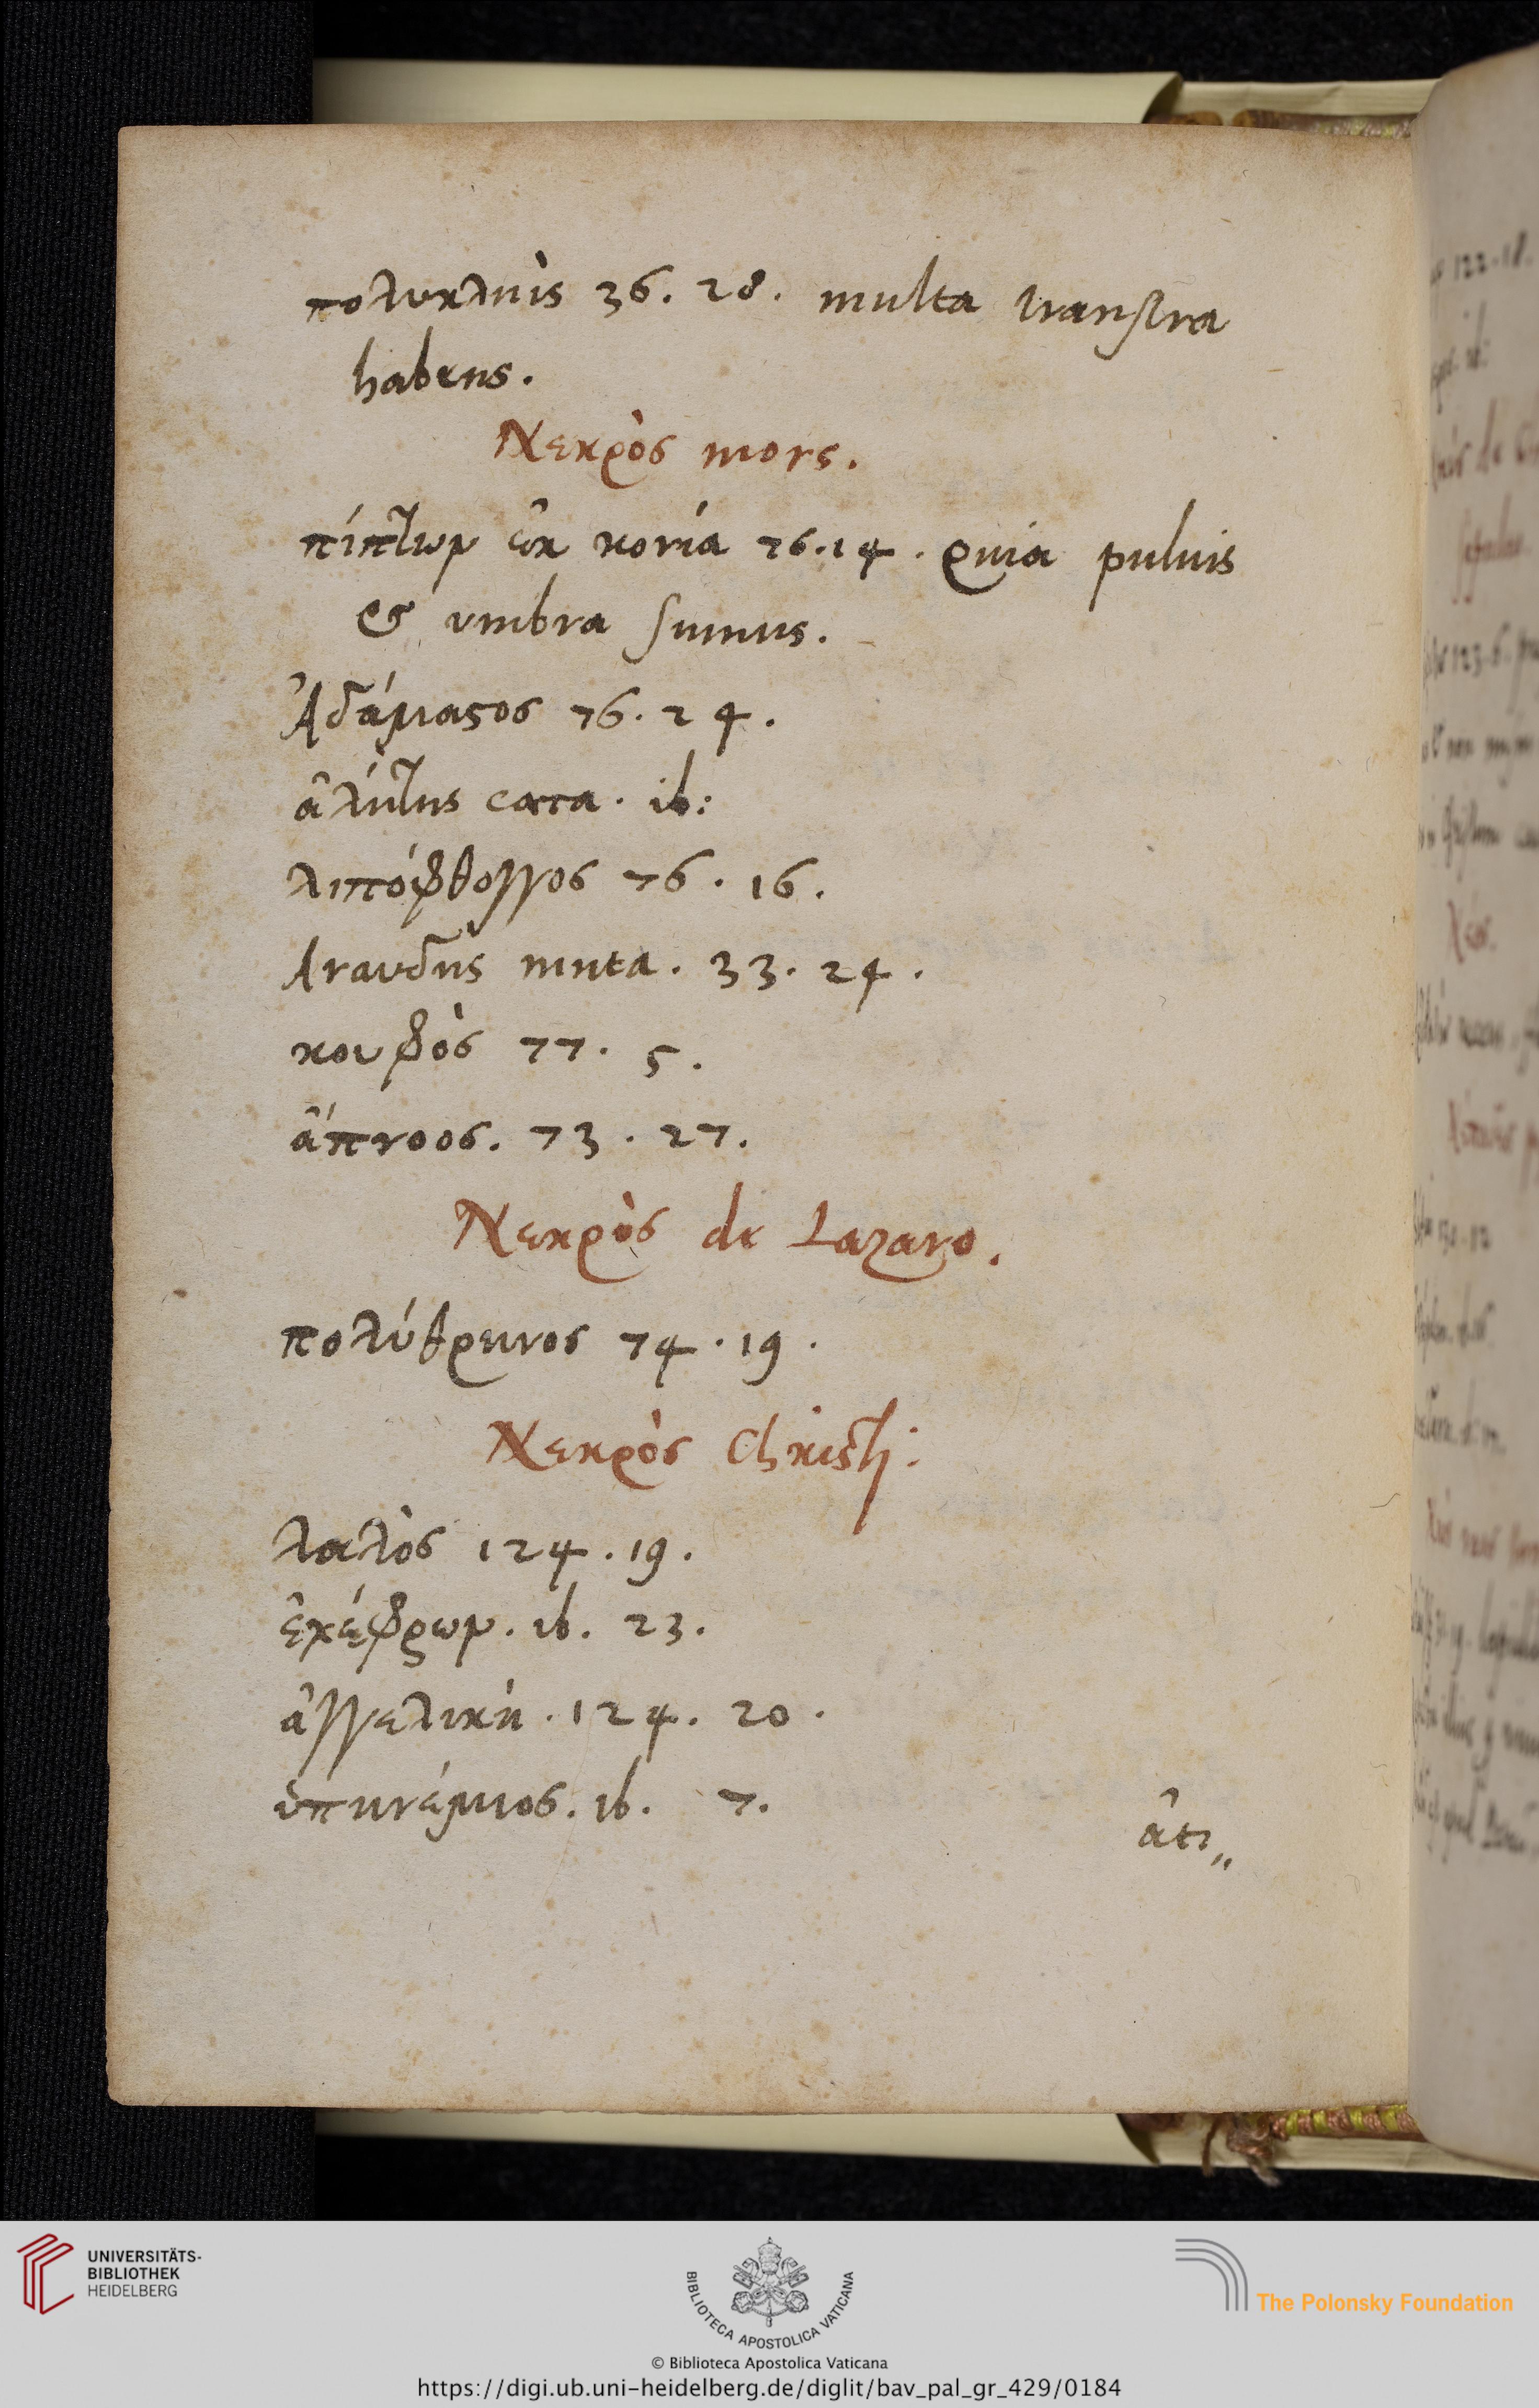 πολυκληὶς 36. 28. multa transtra
habens.
Νεκρὸς mors.
πίπτων ἐν κονία 76.14. quia puluis
& vmbra sumus.
Ἀδάμαϛος 76. 24.
ἀλύτης cara. ib:
λιπόφθογγος 76. 16.
Αναυδης muta. 33. 24.
κουφὸς 77. 5.
ἄπνοος. 73. 27.
Νεκρὸς de Lazaro.
πολύθρηνος 74. 19.
Νεκρὸς Christi:
λαλὸς 124. 19.
ἐχέφρων. ib. 23.
ἀγγελικὴ. 124. 20.
ὑπηνέμιος. ib. 7.
ἀτι„
UNIVERSITÄTS-
BIBLIOTHEK
HEIDELBERG
BIBLIOTECA APOSTOLICA VATICANA
The Polonsky Foundation
© Biblioteca Apostolica Vaticana
https://digi.ub.uni-heidelberg.de/diglit/bav_pal_gr_429/0184